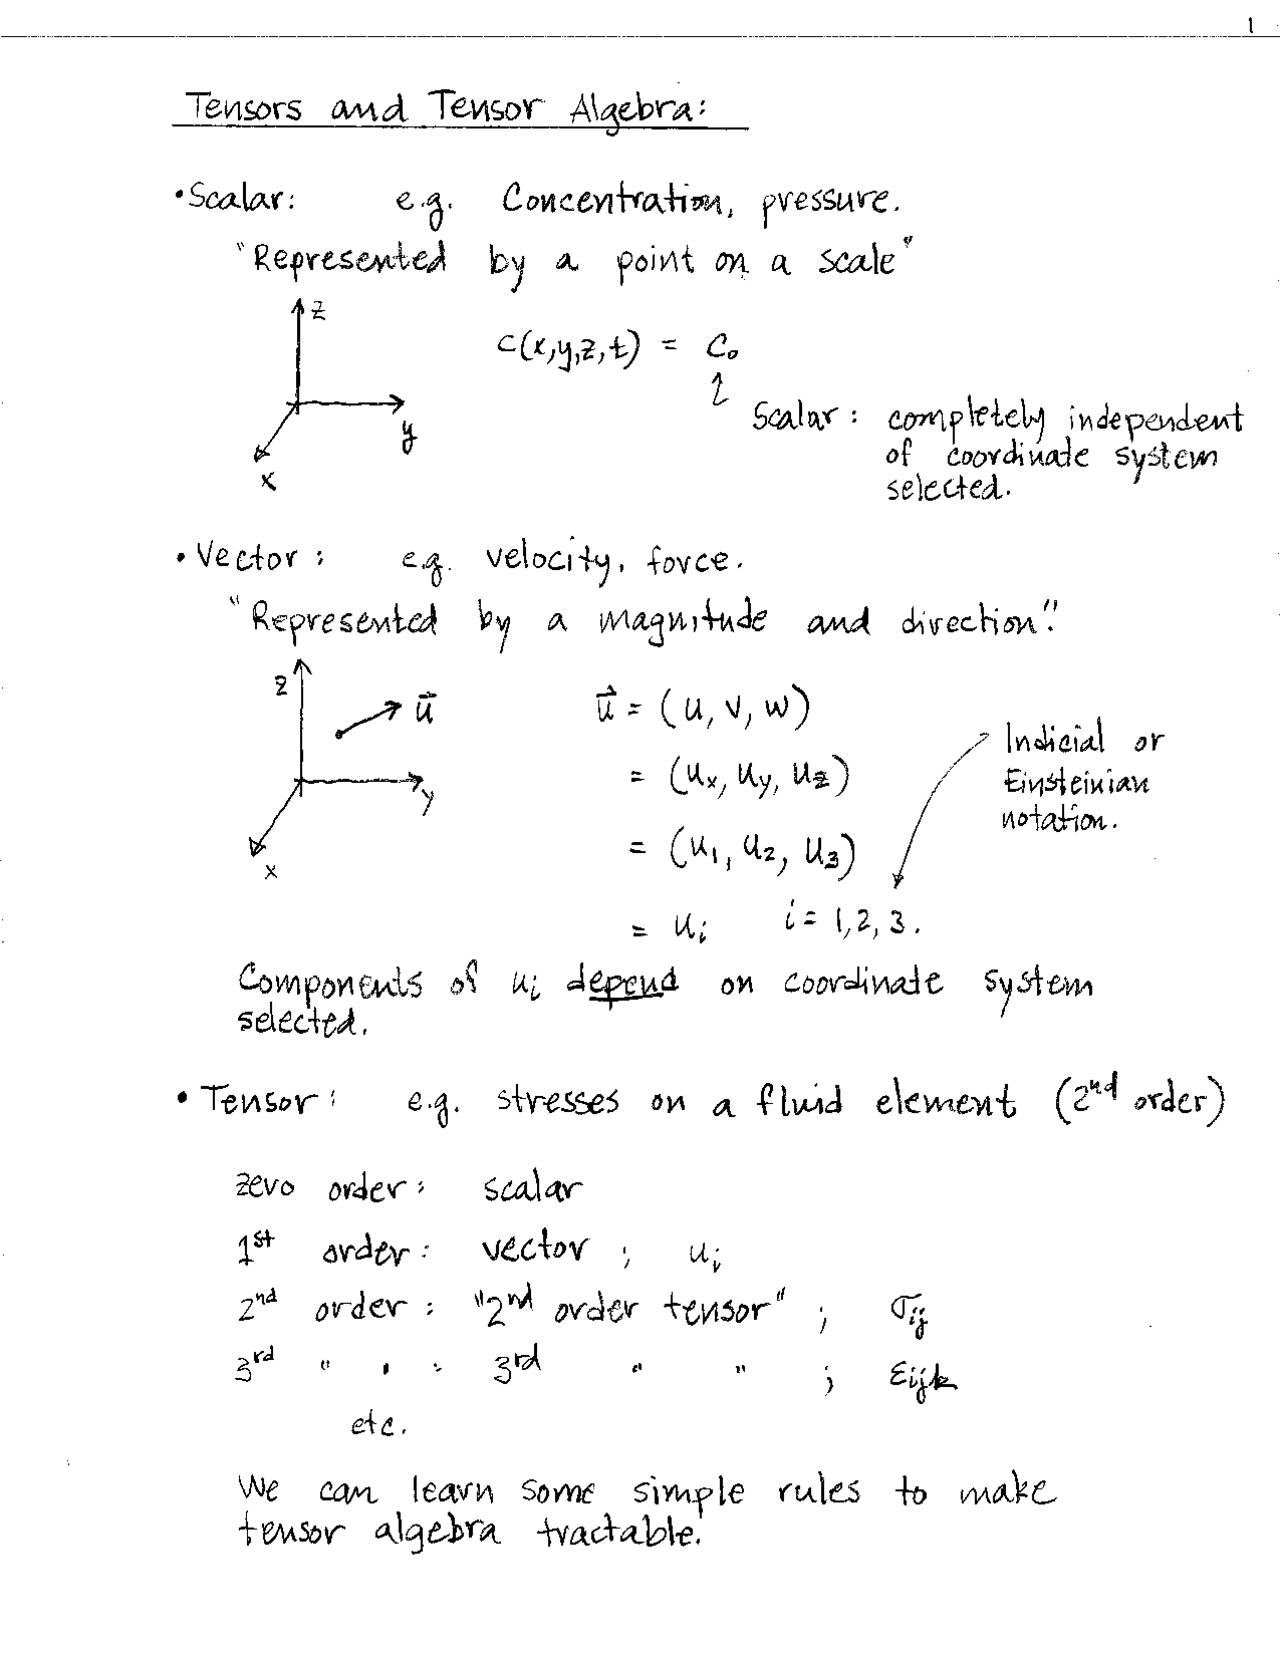 1
Tensors and Tensor Algebra:
• Scalar: e.g. Concentration, pressure.
"Represented by a point on a scale"
z
c(x,y,z,t) = C₀
y
x
Scalar: completely independent
of coordinate system
selected.
• Vector: e.g. velocity, force.
"Represented by a magnitude and direction."
z
u⃗
y
x
u⃗ = (u, v, w)
= (uₓ, u_y, u_z)
= (u₁, u₂, u₃)
= uᵢ i = 1,2,3.
Indicial or
Einsteinian
notation.
Components of uᵢ depend on coordinate system
selected.
• Tensor: e.g. stresses on a fluid element (2nd order)
zero order: scalar
1st order: vector ; uᵢ
2nd order: "2nd order tensor" ; σᵢⱼ
3rd " " : 3rd " " ; εᵢⱼₖ
etc.
We can learn some simple rules to make
tensor algebra tractable.